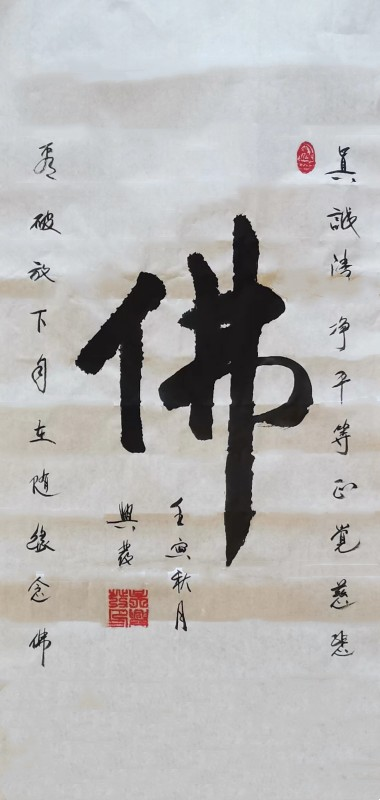 真誠清净平等正覺慈悲
佛
看破放下自在随緣念佛
壬寅秋月
興發